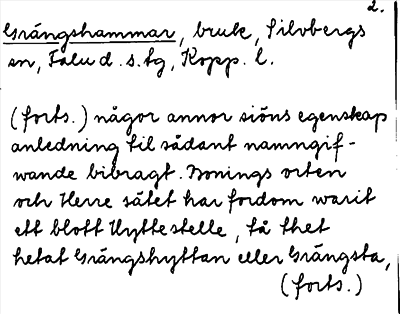 2.
Grängshammar, bruk, Silvbergs
sn, Falu d. s. tg, Kopp. l.
(forts.) någor annor siöns egenskap
anledning til sådant namngif-
wande bibragt. Bonings orten
och Herre sätet har fordom warit
ett blott Hyttestelle, tå thet
hetat Grängshyttan eller Grängsta,
(forts.)